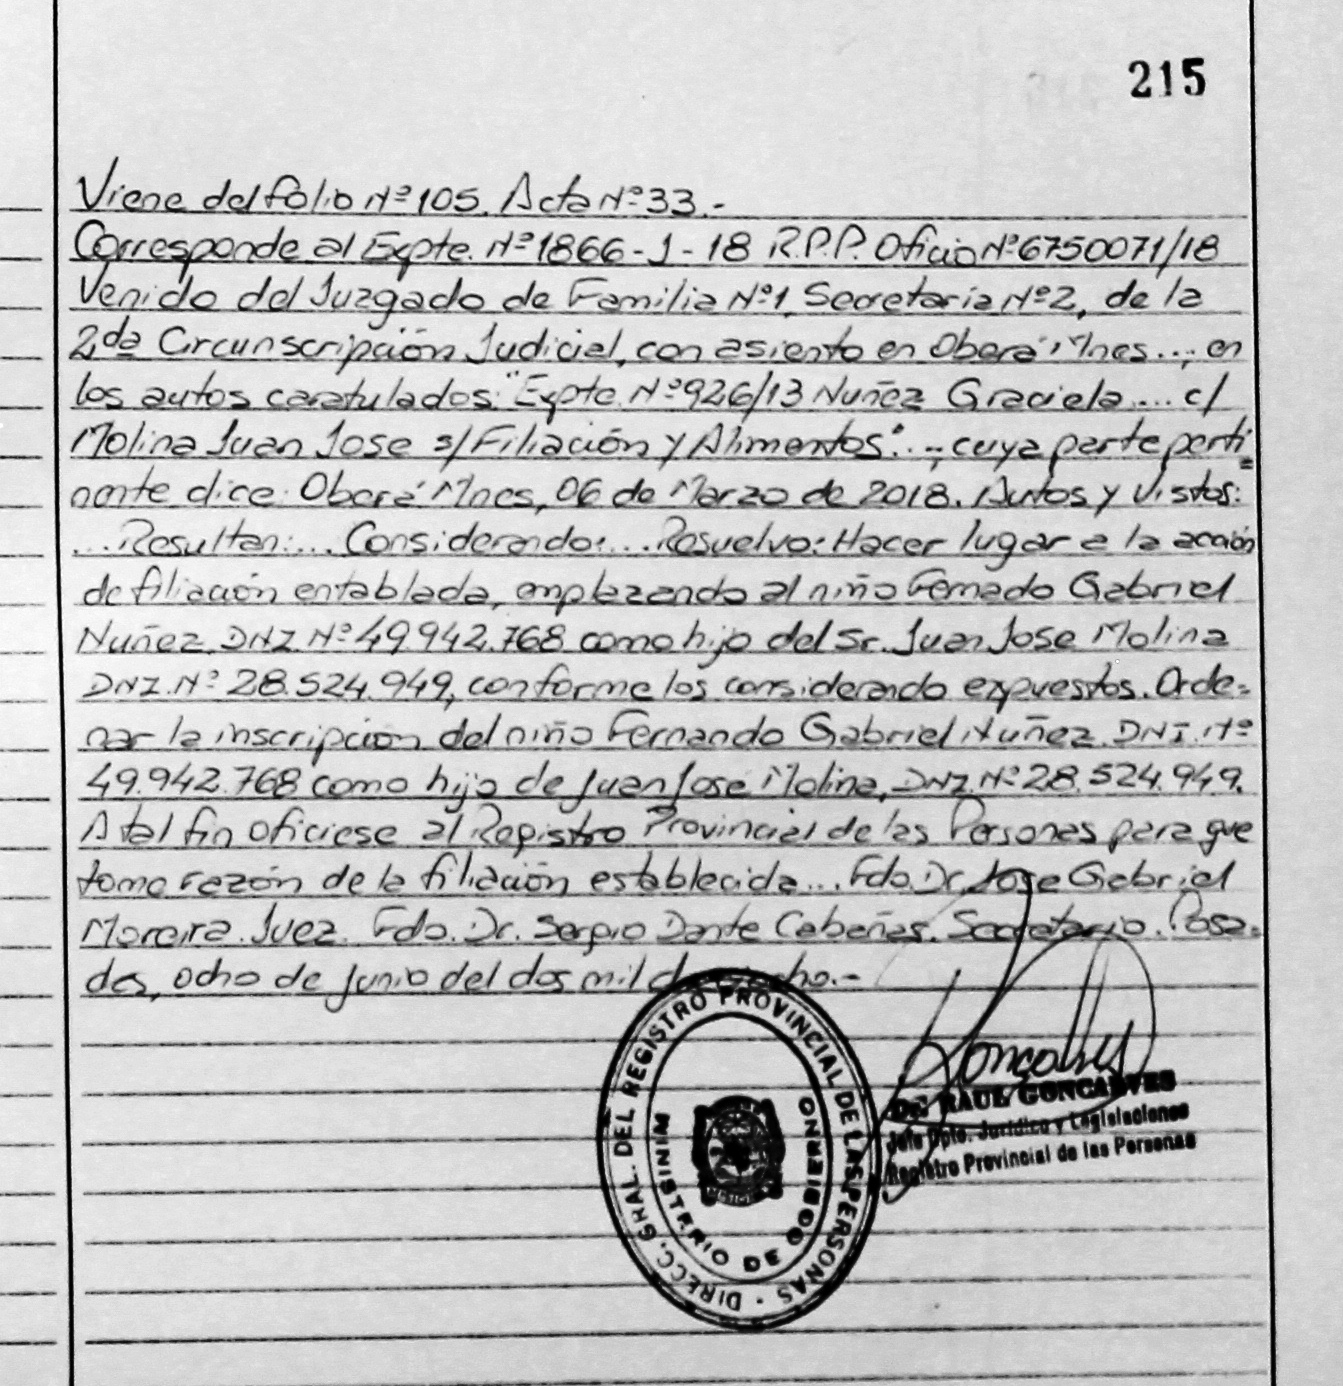 215
Viene del folio Nº 105. Acta Nº 33.-
Corresponde al Expte. Nº 1866-J-18 R.P.P. Oficio Nº 6750071/18
Venido del Juzgado de Familia Nº1, Secretaría Nº2, de la
2da Circunscripción Judicial, con asiento en Oberá, Mnes...; en
los autos caratulados: "Expte. Nº 926/13 Nuñez Graciela... c/
Molina Juan Jose s/Filiación y Alimentos"..., cuya parte perti=
nente dice: Oberá Mnes, 06 de Marzo de 2018. Autos y Vistos:
...Resultan:... Considerando:... Resuelvo: Hacer lugar a la acción
de filiación entablada, emplazando al niño Fernado Gabriel
Nuñez, DNI. Nº 49.942.768 como hijo del Sr. Juan Jose Molina
DNI. Nº 28.524.949, conforme los considerando expuestos. Orde=
nar la inscripción del niño Fernando Gabriel Nuñez. DNI. Nº
49.942.768 como hijo de Juan José Molina, DNI. Nº 28.524.949.
A tal fin oficiese al Registro Provincial de las Personas para que
tome razón de la filiación establecida... Fdo. Dr. Jose Gabriel
Moreira. Juez. Fdo. Dr. Sergio Dante Cabañas. Secretario. Posa=
das, ocho de junio del dos mil dieciocho.-
DIRECC. GRAL. DEL REGISTRO PROVINCIAL DE LAS PERSONAS
MINISTERIO DE GOBIERNO
Dr. RAUL GONCALVES
Jefe Dpto. Jurídico y Legislaciones
Registro Provincial de las Personas